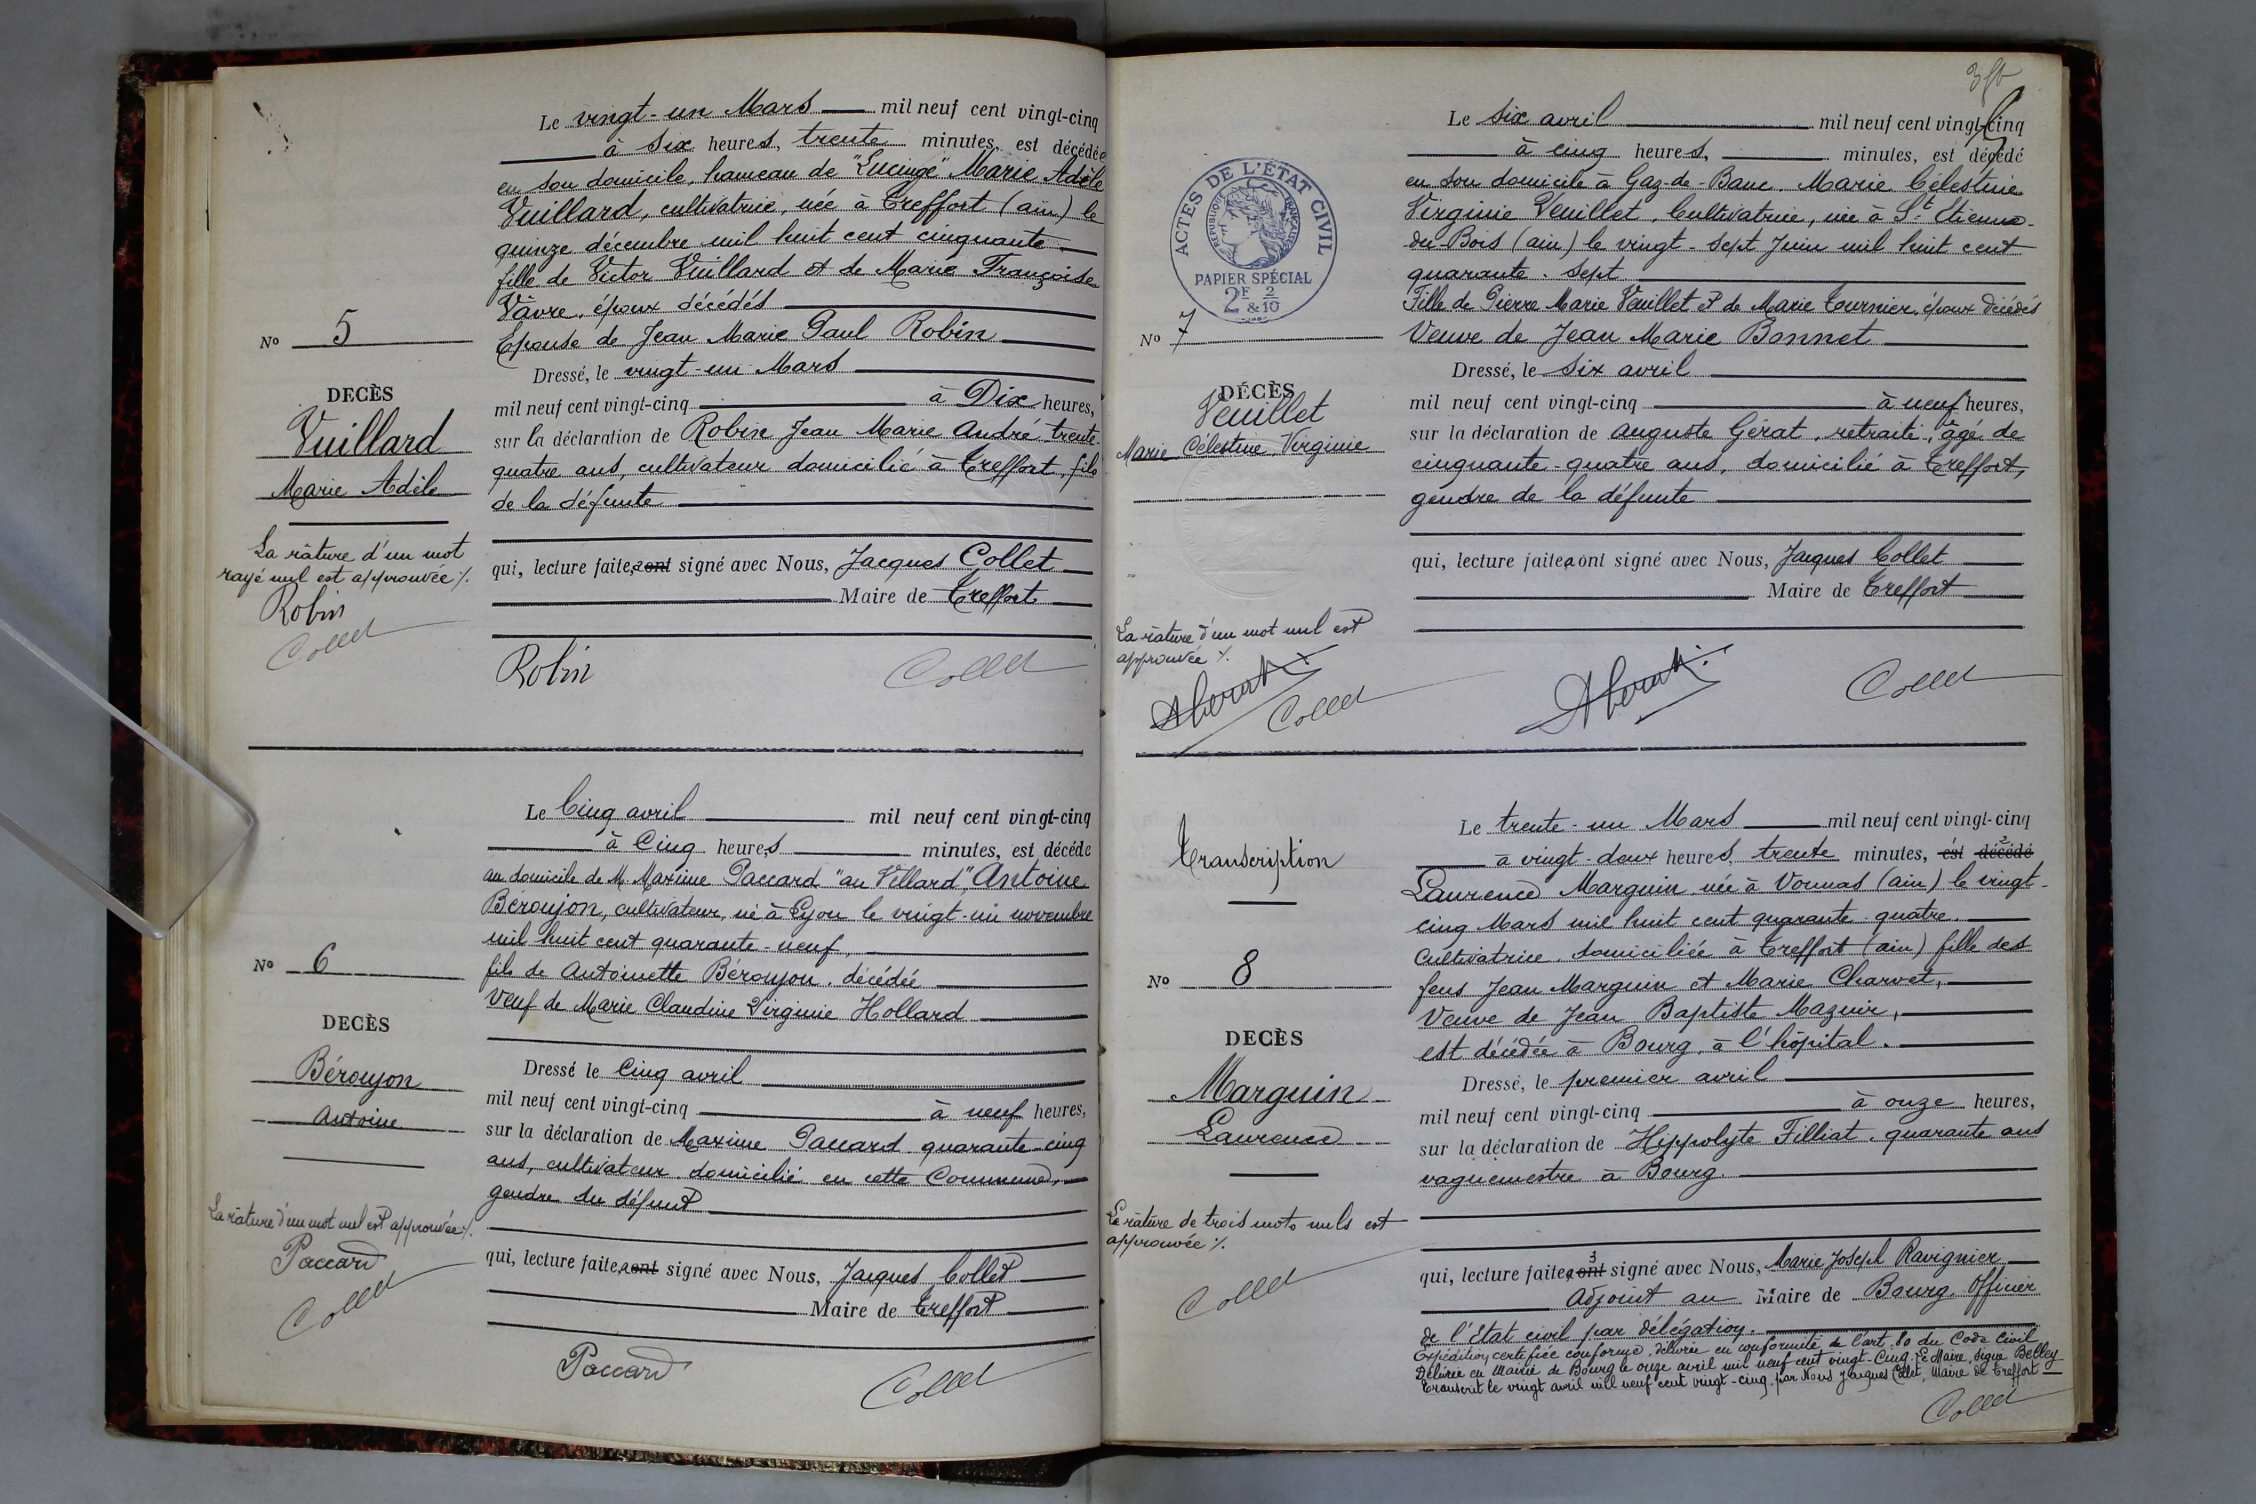 Le vingt-un Mars mil neuf cent vingt-cinq
à six heures, trente minutes, est décédée
en son domicile, hameau de "Lucinge" Marie Adèle
Vuillard, cultivatrice, née à Treffort (ain) le
quinze décembre mil huit cent cinquante
fille de Victor Vuillard et de Marie Françoise
Vâvre, époux décédés
Epouse de Jean Marie Paul Robin
Dressé, le vingt-un Mars
mil neuf cent vingt-cinq à Dix heures,
sur la déclaration de Robin Jean Marie André trente-
quatre ans, cultivateur domicilié à Treffort, fils
de la défunte
qui, lecture faite, a ont signé avec Nous, Jacques Collet
Maire de Treffort
Robin Collet
No 5
DECÈS
Vuillard
Marie Adèle
La râture d'un mot
rayé nul est approuvée %.
Robin
Collet
Le Cinq avril mil neuf cent vingt-cinq
à Cinq heures minutes, est décédé
au domicile de M. Maxime Paccard "au Villard", Antoine
Béroujon, cultivateur, né à Lyon le vingt-un novembre
mil huit cent quarante-neuf,
fils de Antoinette Béroujon, décédée
Veuf de Marie Claudine Virginie Hollard
Dressé le Cinq avril
mil neuf cent vingt-cinq à neuf heures,
sur la déclaration de Maxime Paccard quarante-cinq
ans, cultivateur domicilié en cette Commune,
gendre du défunt
qui, lecture faite, a ont signé avec Nous, Jacques Collet
Maire de Treffort
Paccard
Collet
No 6
DECÈS
Béroujon
Antoine
La râture d'un mot nul est approuvée %.
Paccard
Collet
Le six avril mil neuf cent vingt-cinq
à cinq heures, minutes, est décédé
en son domicile à Gaz-de-Banc. Marie Célestine
Virginie Veuillet, Cultivatrice, née à St Etienne-
du-Bois (ain) le vingt-sept Juin mil huit cent
quarante-sept
Fille de Pierre Marie Veuillet & de Marie Tournier, époux décédés
Veuve de Jean Marie Bonnet
Dressé, le six avril
mil neuf cent vingt-cinq à neuf heures,
sur la déclaration de auguste Gérat, retraité, âgé de
cinquante-quatre ans, domicilié à Treffort,
gendre de la défunte
qui, lecture faite, a ont signé avec Nous, Jacques Collet
Maire de Treffort
Collet
ACTES DE L'ÉTAT CIVIL
RÉPUBLIQUE FRANÇAISE
PAPIER SPÉCIAL
2F & 2/10
No 7
DÉCÈS
Veuillet
Marie Célestine Virginie
La râture d'un mot nul est
approuvée %.
Collet
Le trente-un Mars mil neuf cent vingt-cinq
à vingt-deux heures, trente minutes, est décédé
Laurence Marguin née à Vonnas (ain) le vingt-
cinq Mars mil huit cent quarante-quatre,
Cultivatrice, domiciliée à Treffort (ain) fille des
feus Jean Marguin et Marie Charvet,
Veuve de Jean Baptiste Mazuir,
est décédée à Bourg, à l'hôpital.
Dressé, le premier avril
mil neuf cent vingt-cinq à onze heures,
sur la déclaration de Hippolyte Filliat, quarante ans
vaguemestre à Bourg
qui, lecture faite, a ont signé avec Nous, Marie Joseph Ravignier
Adjoint au Maire de Bourg, Officier
de l'Etat civil par délégation.
Expédition certifiée conforme, délivrée en conformité de l'art. 80 du Code Civil
Délivrée en Mairie de Bourg le onze avril mil neuf cent vingt-Cinq. Le Maire, signé Belley
Transcrit le vingt avril mil neuf cent vingt-cinq, par Nous Jacques Collet, Maire de Treffort
Collet
Transcription
No 8
DECÈS
Marguin
Laurence
La râture de trois mots nuls est
approuvée %.
Collet